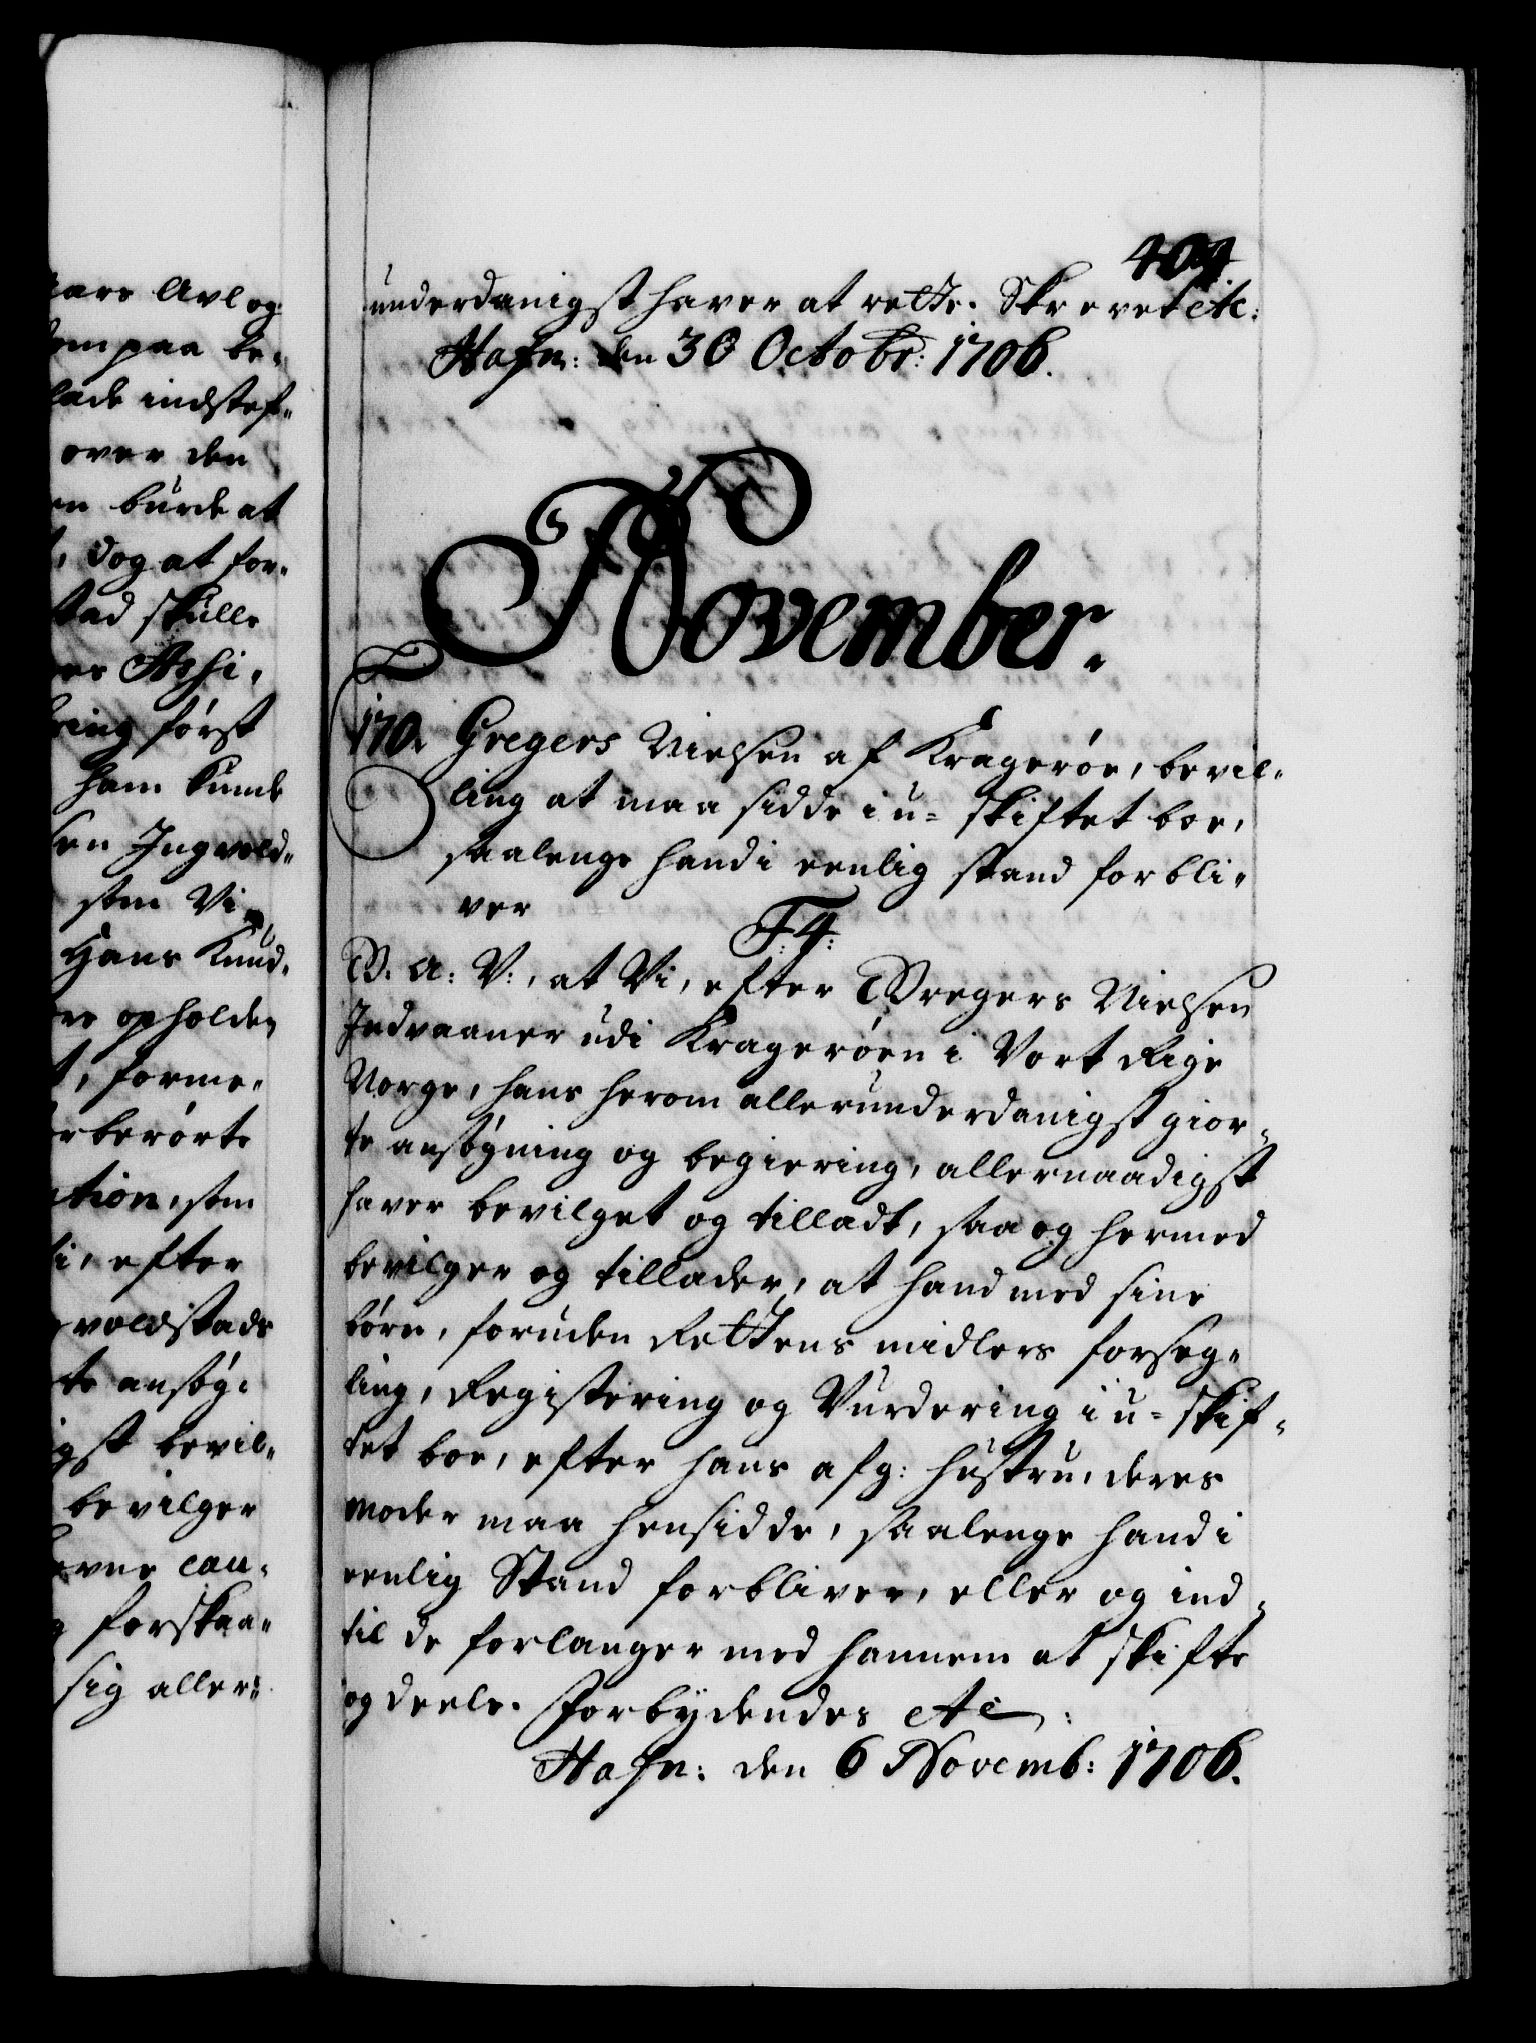 aars Avl og
som paa be-
lade indstef-
over den
en burde at
t, dog at for-
stad skulle
ring først
ham kunde
sen Ingvold-
som Vi
Hans Knud-
opholden
t, forme-
erberørte
ation, som
i, efter
voldstads
te ansøg-
gst bevil-
bevilger
evne cau-
g forskaa-
sig aller-
404
underdanigst haver at rette. Skrevet etc:
Hafn: den 30 Octobr: 1706.
November.
170. Gregers Nielsen af Kragerøe, bevil-
ling at maa sidde i u-skiftet boe,
saalenge hand i eenlig stand forbli-
ver
F. 4.
G. A: V:, at Vi, efter Gregers Nielsen
Indvaaner udi Kragerøen i Vort Rige
Norge, hans herom allerunderdanigst gior-
te ansøgning og begiering, allernaadigst
haver bevilget og tilladt, saa og hermed
bevilger og tillader, at hand med sine
børn, foruden Rettens midlers forseg-
ling, Registering og Vurdering i u-skif-
tet boe, efter hans afg: hustru, deres
moder maa hensidde, saalenge hand i
eenlig Stand forbliver, eller og ind-
til de forlanger med hannem at skifte
og deele. Forbydendes etc:
Hafn: den 6 Novemb: 1706.